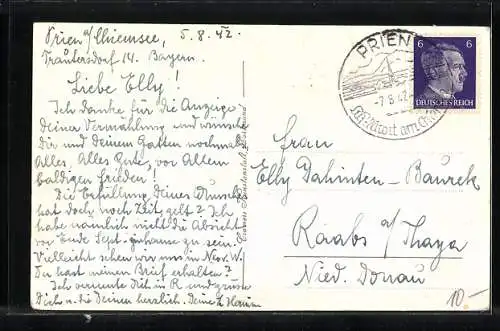 Prien a/Chiemsee, 5.8.42.
Trautersdorf 14. Bayern.
Liebe Elly!
Ich danke für die Anzeige
Deiner Vermählung und wünsche
Dir und deinen Gatten nochmals
Alles, Alles Gute, vor Allem
baldigen Frieden!
Die Erfüllung Deines Wunsches
hat doch noch Zeit, gelt? Ich
habe nämlich nicht die Absicht
vor Ende Sept. zuhause zu sein.
Vielleicht sehen wir uns in
Du hast meinen Brief erhalten?
Ich vermute Dich in R und grüsse
Dich u. die Deinen herzlich. Deine
PRIEN
-7.8.42.-
Luftkurort am
6 6
DEUTSCHES REICH
Frau
Elly Dahinten-Baurek
Raabs a/Thaya
Nied. Donau
10.-